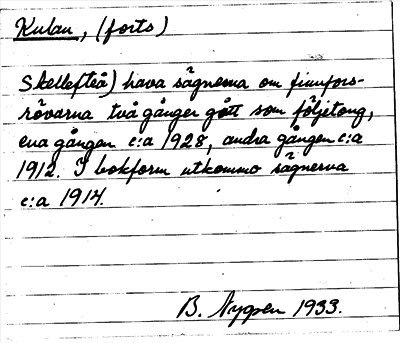 Kulan, (forts)
Skellefteå) hava sägnerna om finnfors-
rövarna två gånger gått som följetong,
ena gången c:a 1928, andra gången c:a
1912. I bokform utkommo sägnerna
c:a 1914.
B. Nygren 1933.